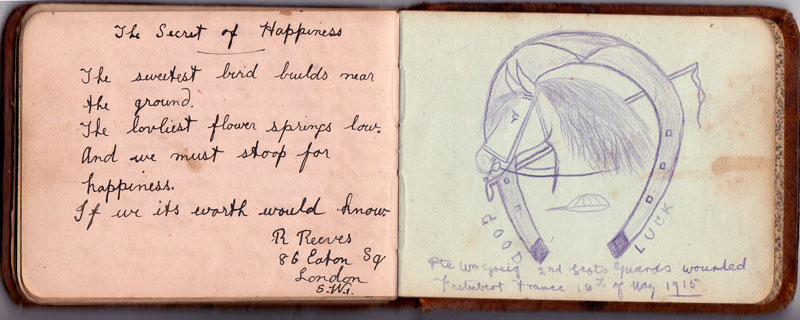 The Secret of Happiness
The sweetest bird builds near
the ground.
The lovliest flower springs low.
And we must stoop for
happiness.
If we its worth would know
R Reeves
86 Eaton Sq
London
S.W.1.
GOOD LUCK
Pte Wm Greig 2nd Scots Guards wounded
Festubert France 16th of May 1915